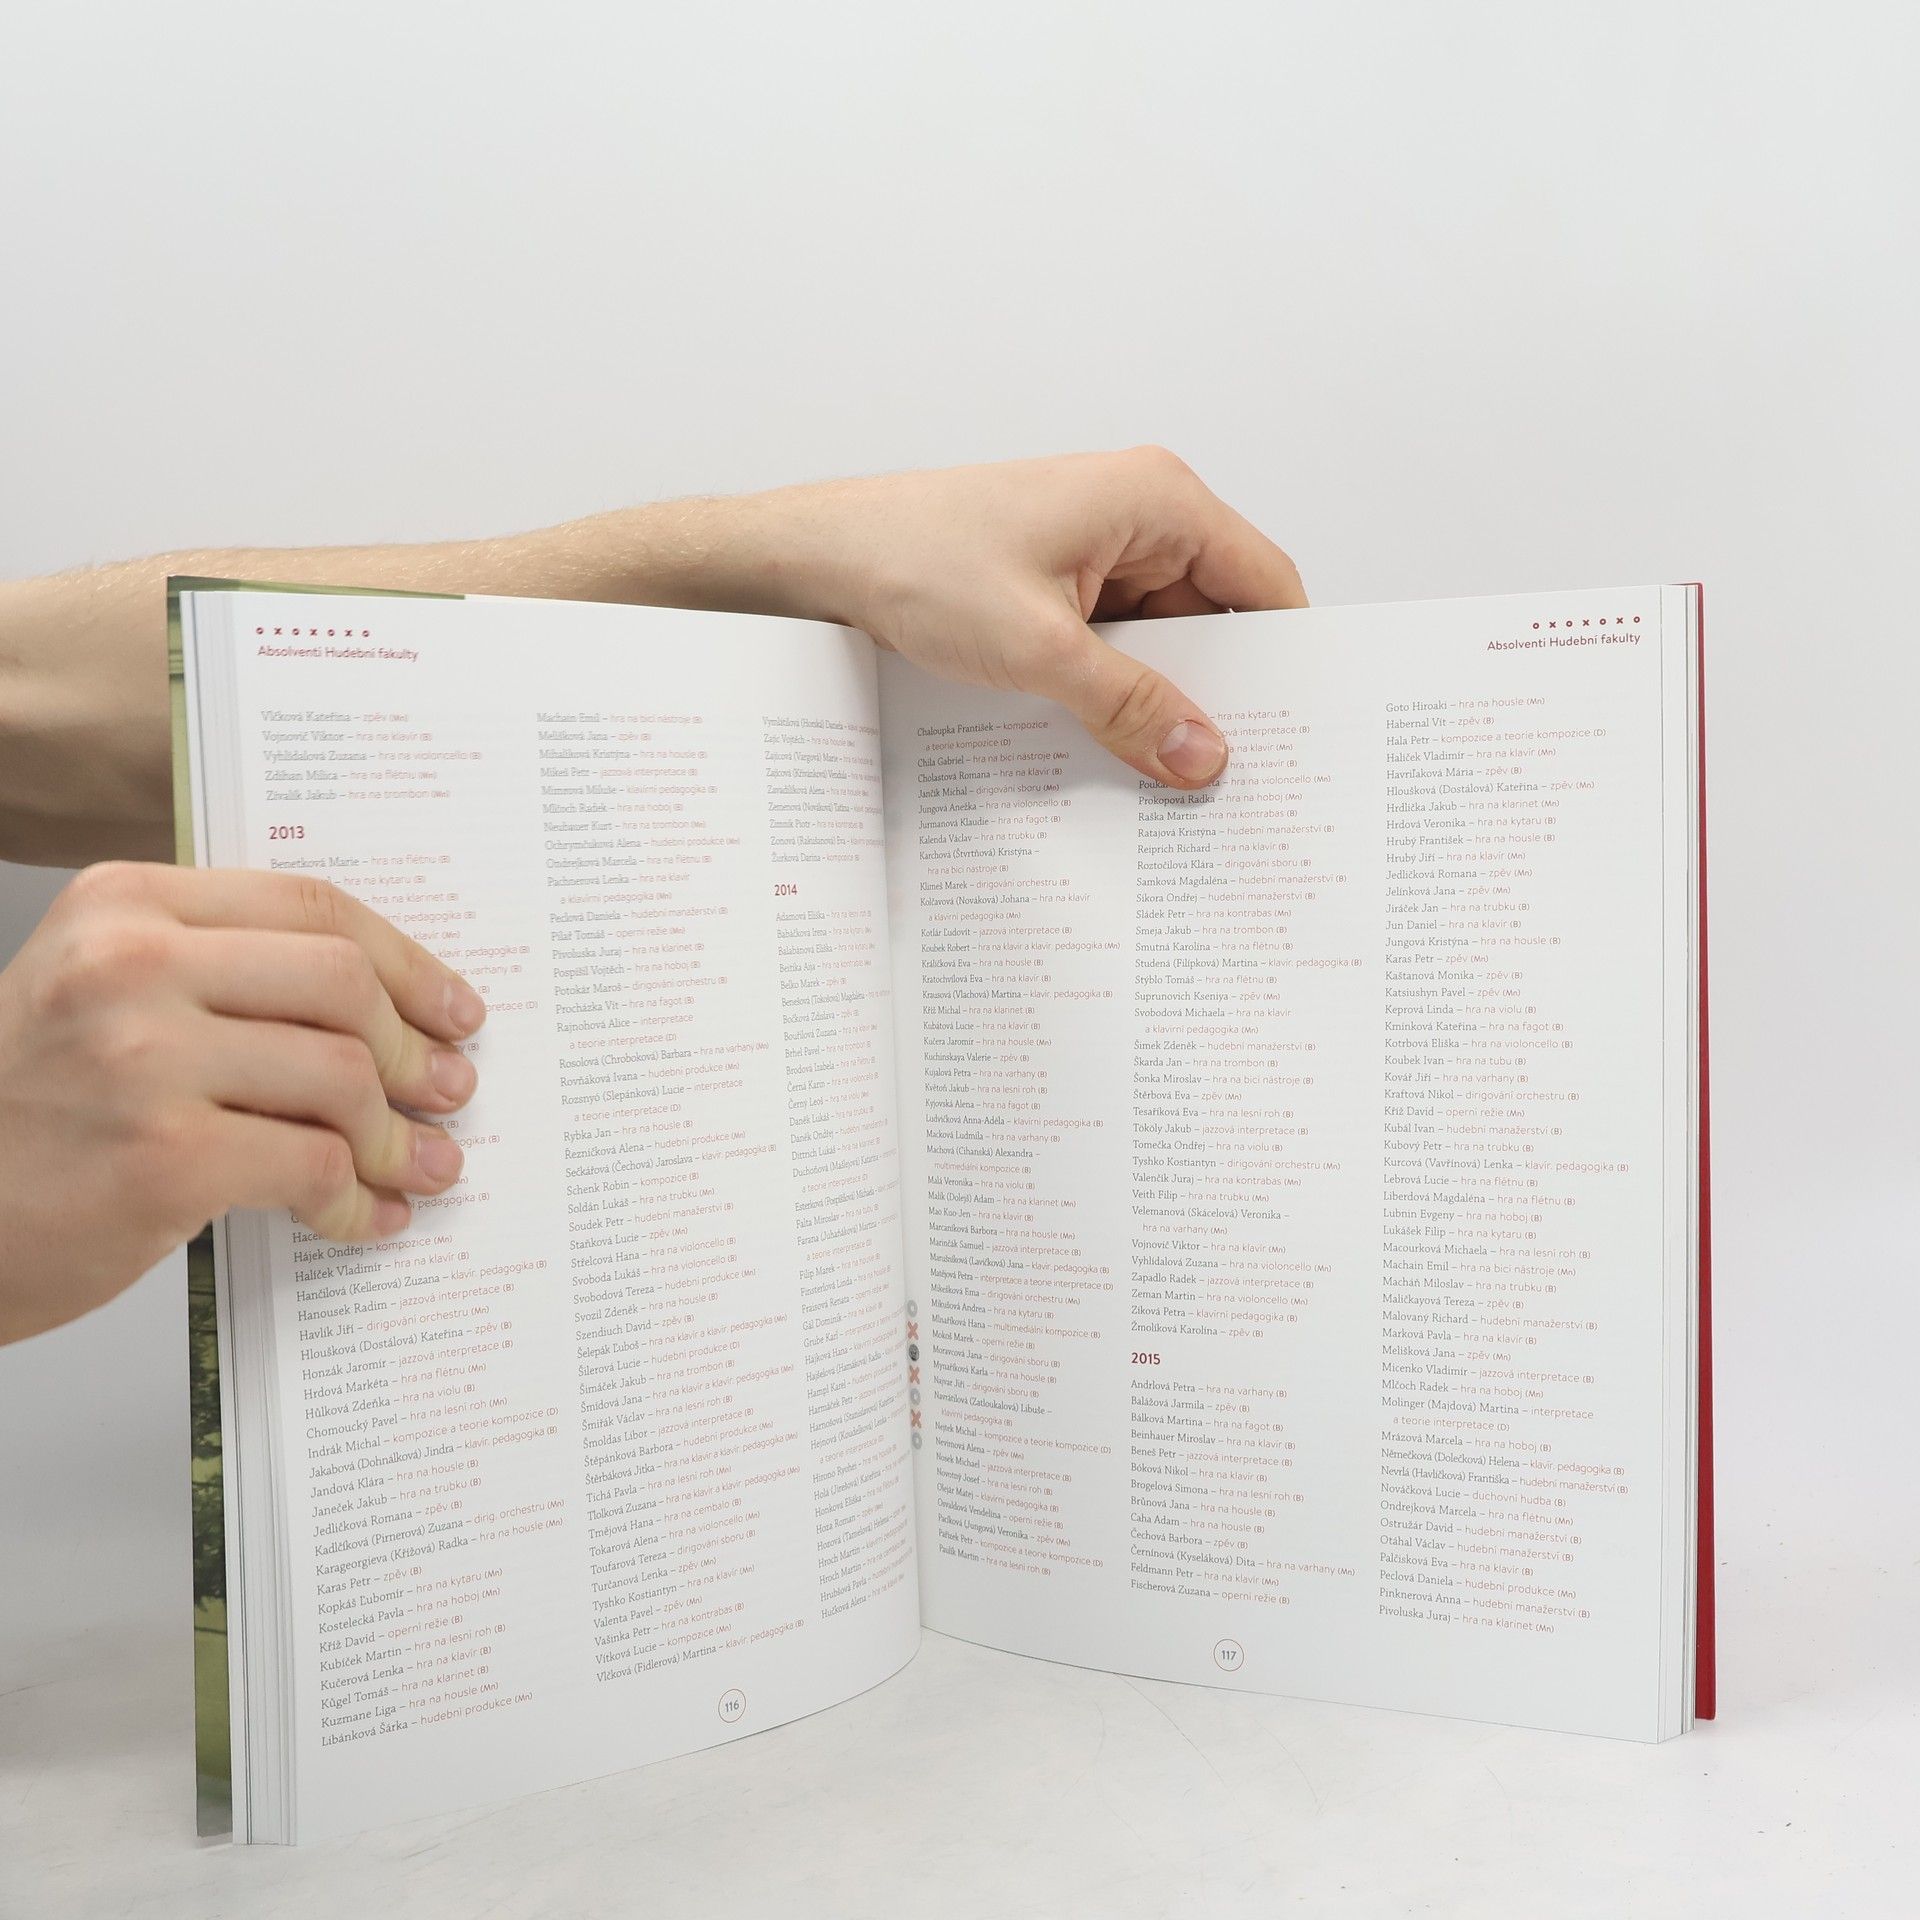 Absolventi Hudební fakulty
Vlčková Kateřina – zpěv (Mn)
Vojnovič Viktor – hra na klavír (B)
Vyhlídalová Zuzana – hra na violoncello (B)
Zdihan Milica – hra na flétnu (Mn)
Zívalík Jakub – hra na trombon (Mn)
2013
Benetková Marie – hra na flétnu (B)
– hra na kytaru (B)
hra na klarinet (B)
pedagogika (B)
klavír (Mn)
klavír. pedagogika (B)
na varhany (B)
(B)
(D)
(B)
(B)
(B)
pedagogika (B)
Hájek Ondřej – kompozice (Mn)
Halíček Vladimír – hra na klavír (B)
Hančilová (Kellerová) Zuzana – klavír. pedagogika (B)
Hanousek Radim – jazzová interpretace (B)
Havlík Jiří – dirigování orchestru (Mn)
Hloušková (Dostálová) Kateřina – zpěv (B)
Honzák Jaromír – jazzová interpretace (B)
Hrdová Markéta – hra na flétnu (Mn)
Hůlková Zdeňka – hra na violu (B)
Chomoucký Pavel – hra na lesní roh (Mn)
Indrák Michal – kompozice a teorie kompozice (D)
Jakabová (Dohnálková) Jindra – klavír. pedagogika (B)
Jandová Klára – hra na housle (B)
Janeček Jakub – hra na trubku (B)
Jedličková Romana – zpěv (B)
Kadlčíková (Pirnerová) Zuzana – dirig. orchestru (Mn)
Karageorgieva (Křížová) Radka – hra na housle (Mn)
Karas Petr – zpěv (B)
Kopkáš Ľubomír – hra na kytaru (Mn)
Kostelecká Pavla – hra na hoboj (Mn)
Kříž David – operní režie (B)
Kubíček Martin – hra na lesní roh (B)
Kučerová Lenka – hra na klavír (B)
Kügel Tomáš – hra na klarinet (B)
Kuzmane Liga – hra na housle (Mn)
Libánková Šárka – hudební produkce (Mn)
Machain Emil – hra na bicí nástroje (B)
Melišková Jana – zpěv (B)
Mihaliková Kristýna – hra na housle (B)
Mikeš Petr – jazzová interpretace (B)
Mimrová Miluše – klavírní pedagogika (B)
Mlčoch Radek – hra na hoboj (B)
Neubauer Kurt – hra na trombon (Mn)
Ochrymčuková Alena – hudební produkce (Mn)
Ondrejková Marcela – hra na flétnu (B)
Pachnerová Lenka – hra na klavír
a klavírní pedagogika (Mn)
Peclová Daniela – hudební manažerství (B)
Pilař Tomáš – operní režie (Mn)
Pivoluska Juraj – hra na klarinet (B)
Pospíšil Vojtěch – hra na hoboj (B)
Potokár Maroš – dirigování orchestru (B)
Procházka Vít – hra na fagot (B)
Rajnohová Alice – interpretace
a teorie interpretace (D)
Rosolová (Chroboková) Barbara – hra na varhany (Mn)
Rovňáková Ivana – hudební produkce (Mn)
Rozsnyó (Slepánková) Lucie – interpretace
a teorie interpretace (D)
Rybka Jan – hra na housle (B)
Řezníčková Alena – hudební produkce (Mn)
Sečkářová (Čechová) Jaroslava – klavír. pedagogika (B)
Schenk Robin – kompozice (B)
Soldán Lukáš – hra na trubku (Mn)
Soudek Petr – hudební manažerství (B)
Staňková Lucie – zpěv (Mn)
Střelcová Hana – hra na violoncello (B)
Svoboda Lukáš – hra na violoncello (B)
Svobodová Tereza – hudební produkce (Mn)
Svozil Zdeněk – hra na housle (B)
Szendiuch David – zpěv (B)
Šelepák Ľuboš – hra na klavír a klavír. pedagogika (Mn)
Šilerová Lucie – hudební produkce (D)
Šimáček Jakub – hra na trombon (B)
Šmídová Jana – hra na klavír a klavír. pedagogika (Mn)
Šmiřák Václav – hra na lesní roh (B)
Šmoldas Libor – jazzová interpretace (B)
Štěpánková Barbora – hudební produkce (Mn)
Štěrbáková Jitka – hra na klavír a klavír. pedagogika (Mn)
Tichá Pavla – hra na lesní roh (Mn)
Tlolková Zuzana – hra na klavír a klavír. pedagogika (Mn)
Tmějová Hana – hra na cembalo (B)
Tokarová Alena – hra na violoncello (Mn)
Toufarová Tereza – dirigování sboru (B)
Turčanová Lenka – zpěv (Mn)
Tyshko Kostiantyn – hra na klavír (Mn)
Valenta Pavel – zpěv (Mn)
Vašinka Petr – hra na kontrabas (B)
Vítková Lucie – kompozice (Mn)
Vlčková (Fidlerová) Martina – klavír. pedagogika (B)
Zajíc Vojtěch – hra na housle
Zimnik Piotr – hra na kontrabas
Žurková Darina – kompozice (B)
2014
Adamová Eliška – hra na lesní roh
Babáčková Irena – hra na kytaru
Balabánová Eliška – hra na kytaru
Belko Marek – zpěv (B)
Bočková Zdislava – zpěv (B)
Bouřilová Zuzana – hra na klavír
Brhel Pavel – hra na trombon
Brodová Izabela – hra na flétnu
Černá Karin – hra na violoncello
Černý Leoš – hra na violu
Daněk Lukáš – hra na trubku
Daněk Ondřej – hudební manažerství
Dittrich Lukáš – hra na klarinet
a teorie interpretace (D)
Falta Miroslav – hra na tubu (B)
a teorie interpretace (D)
Filip Marek – hra na housle (B)
Finsterlová Linda – hra na housle
Fraisová Renata – operní režie
Gál Dominik – hra na klavír
Grube Karl – interpretace a teorie
Hájková Hana – klavírní pedagogika
Hampl Karel – hudební produkce
Harmáček Petr – jazzová interpretace
a teorie interpretace (D)
Hironо Ryohei – hra na housle
Honková Eliška – hra na flétnu
Hoza Roman – zpěv
Hroch Martin – klavírní pedagogika
Hroch Martin – hra na cembalo
Hrubšová Pavla – hudební
Hučková Alena – hra na klavír
116
Absolventi Hudební fakulty
Chaloupka František – kompozice
a teorie kompozice (D)
Chíla Gabriel – hra na bicí nástroje (Mn)
Cholastová Romana – hra na klavír (B)
Jančík Michal – dirigování sboru (Mn)
Jungová Anežka – hra na violoncello (B)
Jurmanová Klaudie – hra na fagot (B)
Kalenda Václav – hra na trubku (B)
Karchová (Štvrtňová) Kristýna –
hra na bicí nástroje (B)
Klimeš Marek – dirigování orchestru (B)
Kolčavová (Nováková) Johana – hra na klavír
a klavírní pedagogika (Mn)
Kotlár Ľudovít – jazzová interpretace (B)
Koubek Robert – hra na klavír a klavír. pedagogika (Mn)
Králíčková Eva – hra na housle (B)
Kratochvílová Eva – hra na klavír (B)
Krausová (Vlachová) Martina – klavír. pedagogika (B)
Kříž Michal – hra na klarinet (B)
Kubátová Lucie – hra na klavír (B)
Kučera Jaromír – hra na housle (Mn)
Kuchinskaya Valerie – zpěv (B)
Kujalová Petra – hra na varhany (B)
Květoň Jakub – hra na lesní roh (B)
Kyjovská Alena – hra na fagot (B)
Ludvíčková Anna-Adéla – klavírní pedagogika (B)
Macková Ludmila – hra na varhany (B)
Machová (Cihanská) Alexandra –
multimediální kompozice (B)
Malá Veronika – hra na violu (B)
Malík (Dolejš) Adam – hra na klarinet (Mn)
Mao Kno-Jen – hra na klavír (B)
Marcaníková Barbora – hra na housle (Mn)
Marinčák Samuel – jazzová interpretace (B)
Marušníková (Lavičková) Jana – klavír. pedagogika (B)
Matějová Petra – interpretace a teorie interpretace (D)
Mikešková Ema – dirigování orchestru (Mn)
Mikušová Andrea – hra na kytaru (B)
Mlnaříková Hana – multimediální kompozice (B)
Mokoš Marek – operní režie (B)
Moravcová Jana – dirigování sboru (B)
Mynaříková Karla – hra na housle (B)
Najvar Jiří – dirigování sboru (B)
Navrátilová (Zatloukalová) Libuše –
klavírní pedagogika (B)
Nejtek Michal – kompozice a teorie kompozice (D)
Nevimová Alena – zpěv (Mn)
Nosek Michael – jazzová interpretace (B)
Novotný Josef – hra na lesní roh (B)
Olejár Matej – klavírní pedagogika (B)
Osvaldová Vendelína – operní režie (B)
Pacíková (Jungová) Veronika – zpěv (Mn)
Pařízek Petr – kompozice a teorie kompozice (D)
Paulík Martin – hra na lesní roh (B)
– hra na kytaru (B)
interpretace (B)
na klavír (Mn)
hra na klavír (B)
– hra na violoncello (Mn)
Prokopová Radka – hra na hoboj (Mn)
Raška Martin – hra na kontrabas (B)
Ratajová Kristýna – hudební manažerství (B)
Reiprich Richard – hra na klavír (B)
Roztočilová Klára – dirigování sboru (B)
Samková Magdaléna – hudební manažerství (B)
Sikora Ondřej – hudební manažerství (B)
Sládek Petr – hra na kontrabas (Mn)
Smeja Jakub – hra na trombon (B)
Smutná Karolína – hra na flétnu (B)
Studená (Filípková) Martina – klavír. pedagogika (B)
Stýblo Tomáš – hra na flétnu (B)
Suprunovich Kseniya – zpěv (Mn)
Svobodová Michaela – hra na klavír
a klavírní pedagogika (Mn)
Šimek Zdeněk – hudební manažerství (B)
Škarda Jan – hra na trombon (B)
Šonka Miroslav – hra na bicí nástroje (B)
Štěrbová Eva – zpěv (Mn)
Tesaříková Eva – hra na lesní roh (B)
Tököly Jakub – jazzová interpretace (B)
Tomečka Ondřej – hra na violu (B)
Tyshko Kostiantyn – dirigování orchestru (Mn)
Valenčík Juraj – hra na kontrabas (Mn)
Veith Filip – hra na trubku (Mn)
Velemanová (Skácelová) Veronika –
hra na varhany (Mn)
Vojnovič Viktor – hra na klavír (Mn)
Vyhlídalová Zuzana – hra na violoncello (Mn)
Zapadlo Radek – jazzová interpretace (B)
Zeman Martin – hra na violoncello (Mn)
Zíková Petra – klavírní pedagogika (B)
Žmolíková Karolína – zpěv (B)
2015
Andrlová Petra – hra na varhany (B)
Balážová Jarmila – zpěv (B)
Bálková Martina – hra na fagot (B)
Beinhauer Miroslav – hra na klavír (B)
Beneš Petr – jazzová interpretace (B)
Bóková Nikol – hra na klavír (B)
Brogelová Simona – hra na lesní roh (B)
Brůnová Jana – hra na housle (B)
Caha Adam – hra na housle (B)
Čechová Barbora – zpěv (B)
Černínová (Kyseláková) Dita – hra na varhany (Mn)
Feldmann Petr – hra na klavír (Mn)
Fischerová Zuzana – operní režie (B)
Goto Hiroaki – hra na housle (Mn)
Habernal Vít – zpěv (B)
Hala Petr – kompozice a teorie kompozice (D)
Halíček Vladimír – hra na klavír (Mn)
Havriľaková Mária – zpěv (B)
Hloušková (Dostálová) Kateřina – zpěv (Mn)
Hrdlička Jakub – hra na klarinet (Mn)
Hrdová Veronika – hra na kytaru (B)
Hrubý František – hra na housle (B)
Hrubý Jiří – hra na klavír (Mn)
Jedličková Romana – zpěv (Mn)
Jelínková Jana – zpěv (Mn)
Jiráček Jan – hra na trubku (B)
Jun Daniel – hra na klavír (B)
Jungová Kristýna – hra na housle (B)
Karas Petr – zpěv (Mn)
Kaštanová Monika – zpěv (B)
Katsiushyn Pavel – zpěv (Mn)
Keprová Linda – hra na violu (B)
Kmínková Kateřina – hra na fagot (B)
Kotrbová Eliška – hra na violoncello (B)
Koubek Ivan – hra na tubu (B)
Kovář Jiří – hra na varhany (B)
Kraftová Nikol – dirigování orchestru (B)
Kříž David – operní režie (Mn)
Kubál Ivan – hudební manažerství (B)
Kubový Petr – hra na trubku (B)
Kurcová (Vavřínová) Lenka – klavír. pedagogika (B)
Lebrová Lucie – hra na flétnu (B)
Liberdová Magdaléna – hra na flétnu (B)
Lubnin Evgeny – hra na hoboj (B)
Lukášek Filip – hra na kytaru (B)
Macourková Michaela – hra na lesní roh (B)
Machain Emil – hra na bicí nástroje (Mn)
Macháň Miloslav – hra na trubku (B)
Maličkayová Tereza – zpěv (B)
Malovaný Richard – hudební manažerství (B)
Marková Pavla – hra na klavír (B)
Melišková Jana – zpěv (Mn)
Micenko Vladimír – jazzová interpretace (B)
Mlčoch Radek – hra na hoboj (Mn)
Molinger (Majdová) Martina – interpretace
a teorie interpretace (D)
Mrázová Marcela – hra na hoboj (B)
Němečková (Dolečková) Helena – klavír. pedagogika (B)
Nevrlá (Havlíčková) Františka – hudební manažerství (B)
Nováčková Lucie – duchovní hudba (B)
Ondrejková Marcela – hra na flétnu (Mn)
Ostružár David – hudební manažerství (B)
Otáhal Václav – hudební manažerství (B)
Palčisková Eva – hra na klavír (B)
Peclová Daniela – hudební produkce (Mn)
Pinknerová Anna – hudební manažerství (B)
Pivoluska Juraj – hra na klarinet (Mn)
117